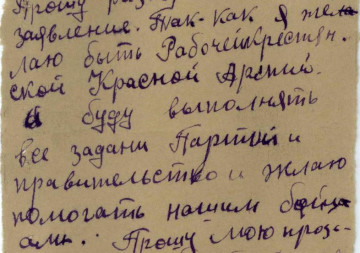 Прошу
заявление. Так-как я жела
лаю быть Рабочей Крестян.
ской Красной Армии.
я буду выполнять
все задани Партии и
правительство и желаю
помогать нашим бойц-
ами. Прошу мою прозь-